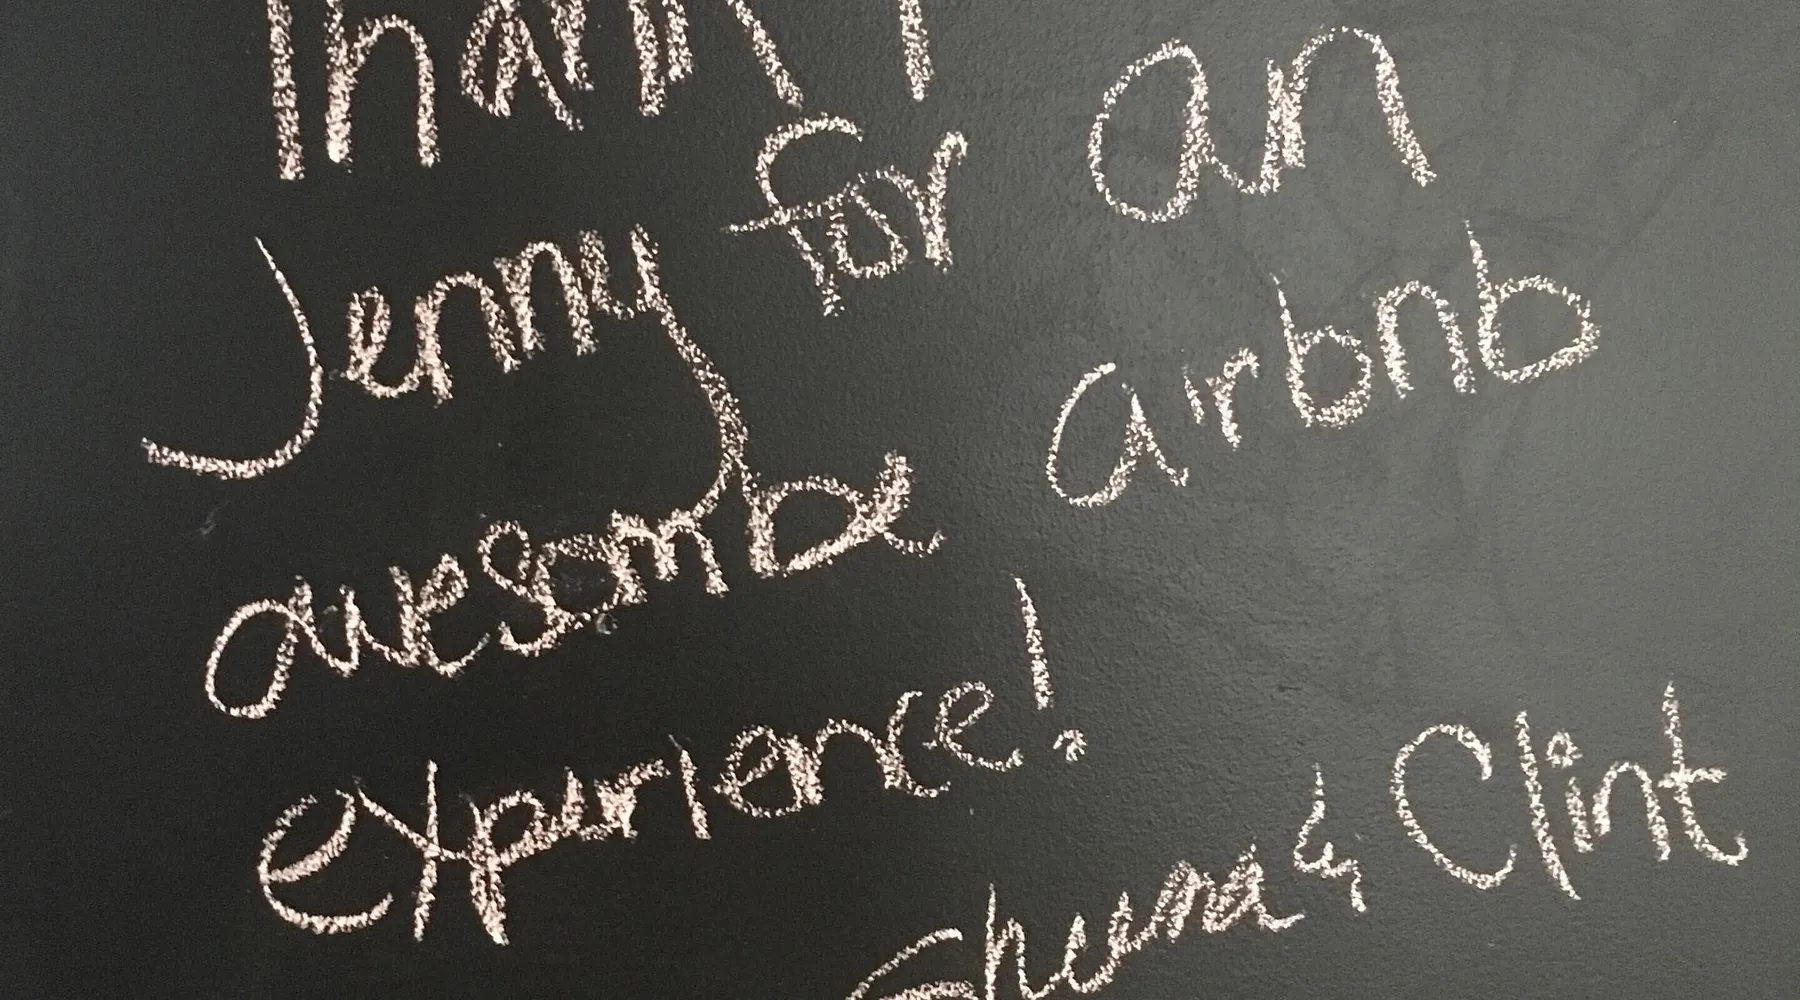 Thank
Jenny for an
awesome airbnb
experience!
Sheena & Clint